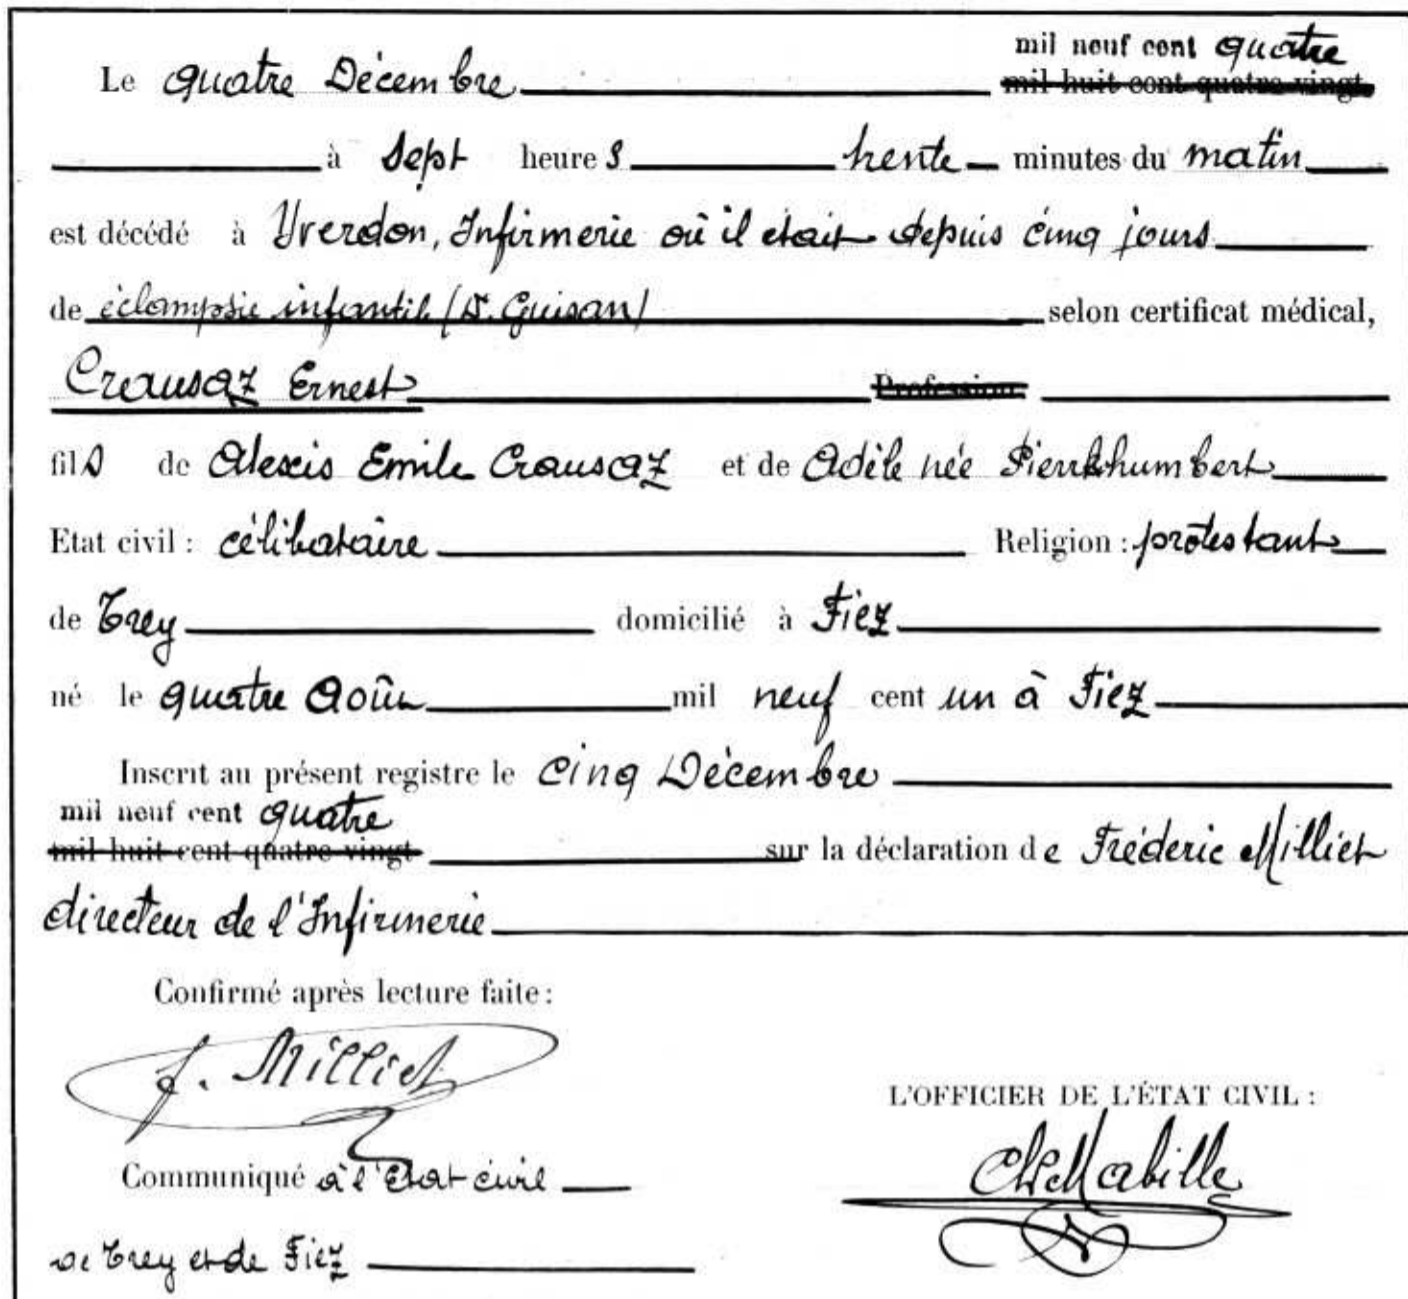 mil neuf cent quatre
Le quatre Décembre mil huit cent quatre-vingt
à sept heures trente minutes du matin
est décédé à Yverdon, Infirmerie où il était depuis cinq jours
de éclampsie infantile (Dr. Guisan) selon certificat médical,
Crausaz Ernest Profession
fils de Alexis Emile Crausaz et de Adèle née Pierrehumbert
Etat civil : célibataire Religion : protestant
de Trey domicilié à Fiez
né le quatre Août mil neuf cent un à Fiez
Inscrit au présent registre le cinq Décembre
mil neuf cent quatre
mil huit cent quatre-vingt sur la déclaration de Fréderic Milliet
directeur de l'Infirmerie
Confirmé après lecture faite :
f. Milliet
L'OFFICIER DE L'ÉTAT CIVIL :
Ch. Mabille
Communiqué à l'Etat civil
de Trey et de Fiez